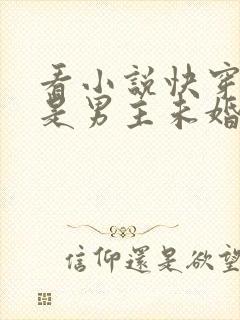 看小説快穿
是男主未婚
信仰還是欲望